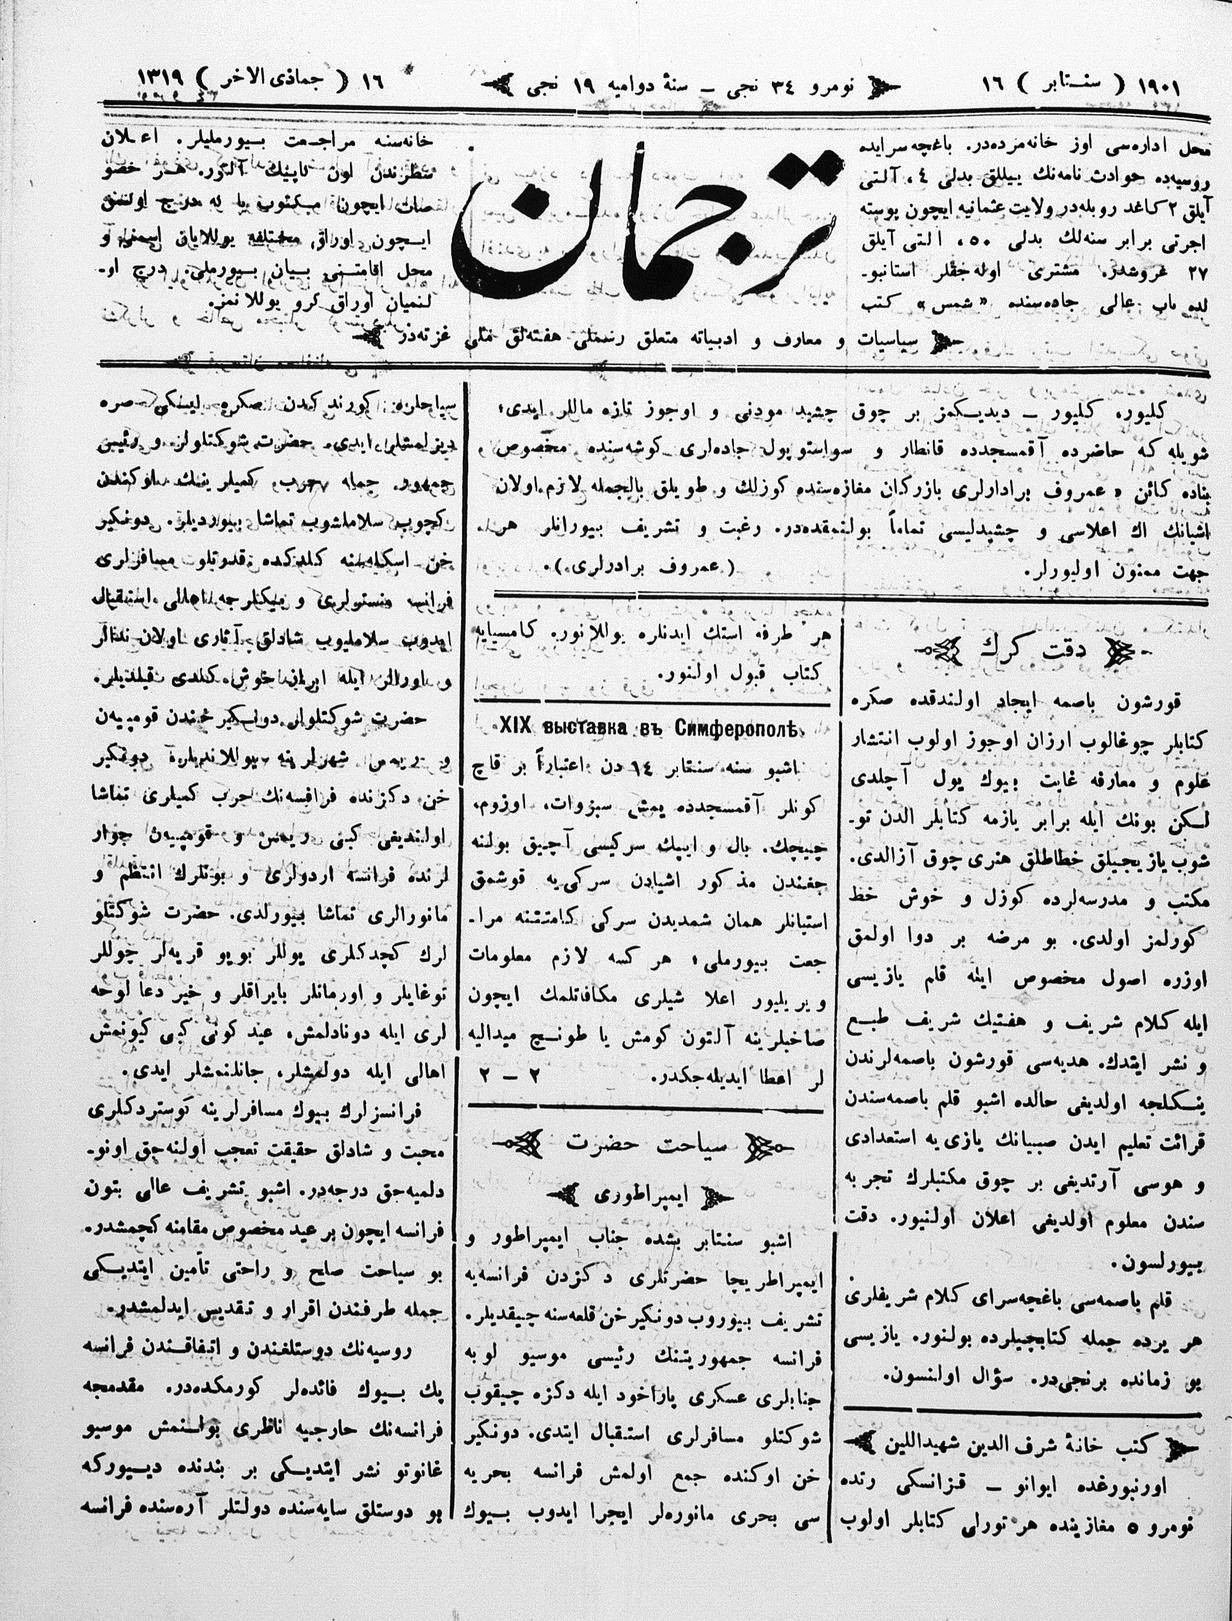 ١٩٠١ ( سنتابر ) ١٦
نومرو ٣٤ نجی – سنهٔ دوامیه ١٩ نجی
١٦ ( جماذی الاخر ) ١٣١٩
محل اداره‌سی اوز خانه‌مزده‌در. باغچه‌سرایده
روسیه‌ده حوادث نامه‌نك ییللق بدلی ٤، آلتی
آیلق ٢ كاغد روبله‌در ولایت عثمانیه ایچون پوسته
اجرتی برابر سنه‌لك بدلی ٥٠، التی آیلق
٢٧ غروشدر. مشتری اوله‌جقلر استانبو‌ـ
لده باب عالی جاده‌سنده «شمس» كتب
ترجمان
خانه‌سنه مراجعت بیورملیلر. اعلان
سطرندن اون كاپیك آلنور. هر خصو
صات ایچون مكتوب یا به درج اولنمق
ایچون اوراق مختلفه یوللایان اسمنی و
محل اقامتنی بیان بیورملی. درج او‌ـ
لنمیان اوراق كرو یوللانمز.
سیاسیات و معارف و ادبیاته متعلق رسملی هفته‌لق ملی غزته‌در
كلیور، كلیور – دیدیكمز بر چوق چشید مودنی و اوجوز تازه ماللر ایدی؛
شویله كه حاضرده آقمسجدده قانطار و سواستوپول جاده‌لری كوشه‌سنده مخصوص
بناده كائن «عمروف برادارلری بازركان مغازه‌سنده كوزلك و طویلق بالجمله لازم اولان
اشیانك اك اعلاسی و چشیدلیسی تماماً بولنمقده‌در. رغبت و تشریف بیورانلر هر
جهت ممنون اولیورلر.
(عمروف برادرلری).
دقت كرك
قورشون باصمه ایجاد اولندقده صكره
كتابلر چوغالوب ارزان اوجوز اولوب انتشار
علوم و معارفه غایت بیوك یول آچلدی
لكن بونك ایله برابر یازمه كتابلر الدن تو‌ـ
شوب یازیجیلق خطاطلق هنری چوق آزالدی.
مكتب و مدرسه‌لرده كوزل و خوش خط
كورلمز اولدی. بو مرضه بر دوا اولمق
اوزره اصول مخصوص ایله قلم یازیسی
ایله كلام شریف و هفتیك شریف طبع
و نشر ایتدك. هدیه‌سی قورشون باصمه‌لرندن
ینكلجه اولدیغی حالده اشبو قلم باصمه‌سندن
قرائت تعلیم ایدن صبیانك یازی‌یه استعدادی
و هوسی آرتدیغی بر چوق مكتبلرك تجربه
سندن معلوم اولدیغی اعلان اولنیور. دقت
بیورلسون.
قلم باصمه‌سی باغچه‌سرای كلام شریفلری
هر یرده جمله كتابچیلرده بولنور. یازیسی
بو زمانده برنجی‌در. سؤال اولنسون.
كتب خانهٔ شرف الدین شهیداللین
اورنبورغده ایوانو – قزانسكی رنده
نومرو ٥ مغازینده هر تورلی كتابلر اولوب
هر طرفه استك ایدنلره یوللانور. كامسیایه
كتاب قبول اولنور.
XIX выставка въ Симферополѣ
اشبو سنه سنتابر ١٤ دن اعتباراً بر قاچ
كونلر آقمسجدده یمش سبزوات، اوزوم،
چیچك. بال و ایپك سركیسی آچیق بولنه
جغندن مذكور اشیادن سركی‌یه قوشمق
استیانلر همان شمدیدن سركی كامتتنه مرا‌ـ
جعت بیورملی؛ هر كسه لازم معلومات
ویریلیور اعلا شیلری مكافاتلمك ایچون
صاخبلرینه آلتون كومش یا طونج میدالیه
لر اعطا ایدیله‌جكدر.
٢ – ٢
سیاحت حضرت
ایمپراطوری
اشبو سنتابر بشده جناب ایمپراطور و
ایمپراطریچا حضرتلری دكزدن فرانسه‌یه
تشریف بیوروب دونكیرخن قلعه‌سنه چیقدیلر.
فرانسه جمهوریتنك رئیسی موسیو لوبه
جنابلری عسكری پاراخود ایله دكزه چیقوب
شوكتلو مسافرلری استقبال ایتدی. دونكیر
خن اوكنده جمع اولمش فرانسه بحریه
سی بحری مانوره‌لر ایجرا ایدوب بیوك
سیاحلره كورندكدن صكره ایكی صره
دیزلمشلر ایدی. حضرت شوكتلولر و رئیس
جمهور جمله حرب كمیلرینك اوكندن
كچوب سلاملشوب تماشا بیوردیلر. دونكیر
خن اسكله‌سنه كلدكده قدوتلو مسافرلری
فرانسه منسترلری و میكلرجه اهالی استقبال
ایدوب سلاملیوب شادلق آثاری اولان ندالر
و اورالر ایله ایران خوش كلدی قیلدیلر.
حضرت شوكتلولر دونكیرخندن قومپیه‌ن
و ریمس شهرلرینه یوللاندیلر. دونكیر
خن دكزنده فرانسه‌نك حرب كمیلری تماشا
اولندیغی كبی ریمس و قومپیه‌ن جوار
لرنده فرانسه اردولری و بونلرك انتظم و
مانورالری تماشا بیورلدی. حضرت شوكتلو
لرك كچدكلری یوللر بویو قریه‌لر چوللر
توغایلر و اورمانلر بایراقلر و خیر دعا لوحه
لری ایله دونادلمش، عید كونی كبی كیونمش
اهالی ایله دولمشلر، جانلنمشلر ایدی.
فرانسزلرك بیوك مسافرلرینه كوستردكلری
محبت و شادلق حقیقت تعجب اولنه‌جق اونو‌ـ
دلمیه‌جق درجه‌در. اشبو تشریف عالی بتون
فرانسه ایچون بر عید مخصوص مقامنه كچمشدر.
بو سیاحت صلح و راحتی تأمین ایتدیكی
جمله طرفندن اقرار و تقدیس ایدلمشدر.
روسیه‌نك دوستلغندن و اتفاقندن فرانسه
پك بیوك فائده‌لر كورمكده‌در. مقدمجه
فرانسه‌نك حارجیه ناظری بولنمش موسیو
غانوتو نشر ایتدیكی بر بندنده دییوركه
بو دوستلق سایه‌سنده دولتلر آره‌سنده فرانسه